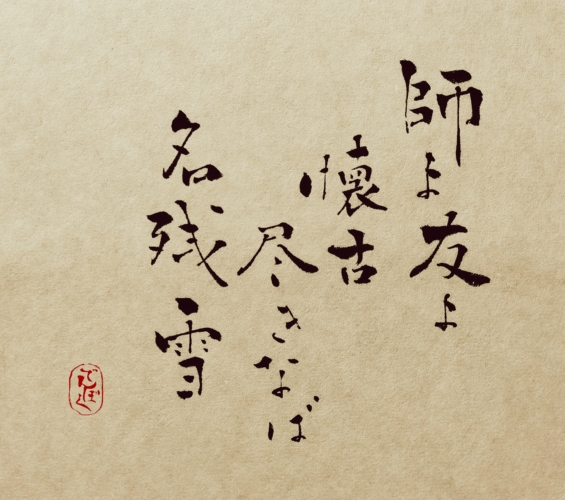 師よ友よ
懐古
尽きなば
名残雪